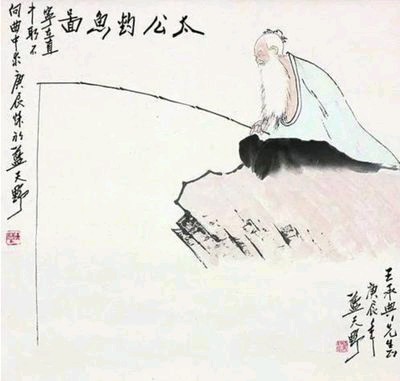 太公钓魚啚
寧在直
中取不
向曲中求 庚辰秋 藍天野
王承典先生正
庚辰年
藍天野